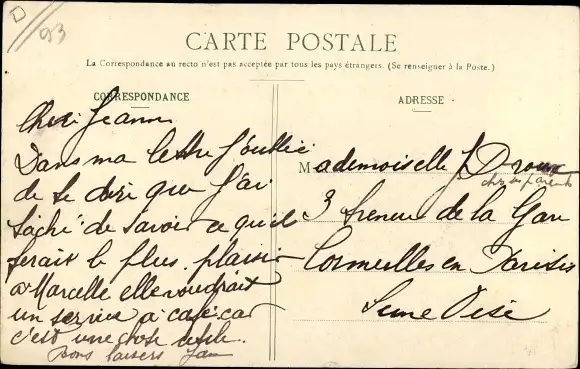 93
CARTE POSTALE
La Correspondance au recto n'est pas acceptée par tous les pays étrangers. (Se renseigner à la Poste.)
CORRESPONDANCE
Cheri Jeanne
Dans ma lettre j'oublie
de te dire que j'ai
taché de savoir ce qu'il
ferait le plus plaisir
a Marcelle elle voudrait
un service à café car
c'est une chose utile.
Bons baisers
ADRESSE
Mademoiselle J Droux
chez ses parents
3 Avenue de la Gare
Cormeilles en Parisis
Seine Oise